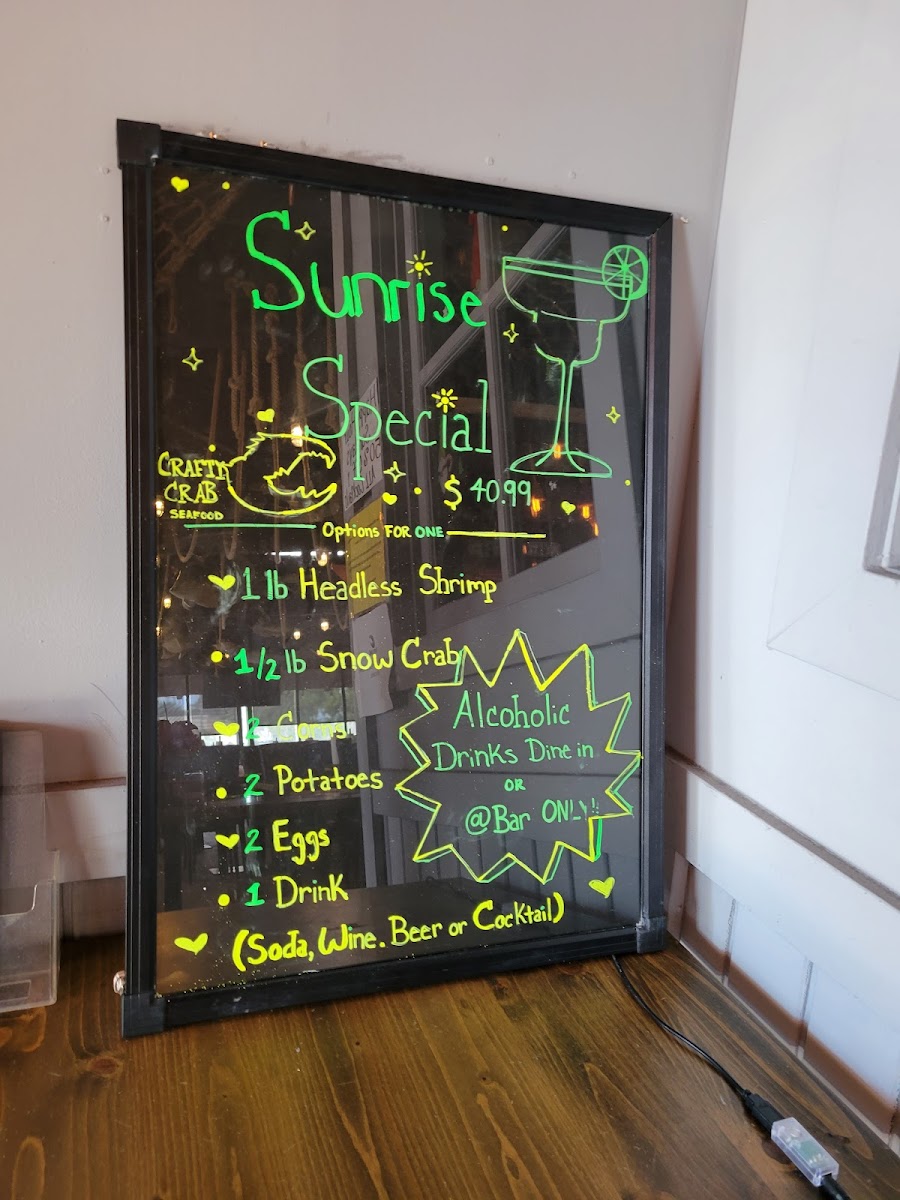 Sunrise
Special
CRAFTY
CRAB
SEAFOOD
$40.99
Options FOR ONE
1 lb Headless Shrimp
1/2 lb Snow Crab
2 Corns
2 Potatoes
2 Eggs
1 Drink
(Soda, Wine. Beer or Cocktail)
Alcoholic
Drinks Dine in
OR
@Bar ONLY!